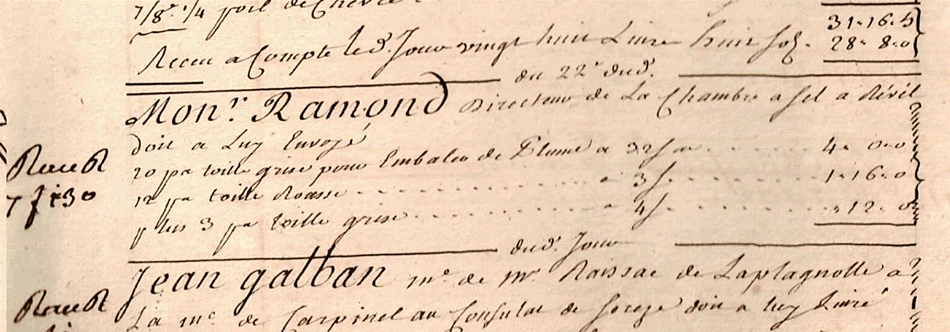 7/8.s 1/4 poil de Chevre 31-16-5
Receu a Compte led.t Jour vingt huit Livre huit sols. 28-8-0
du 22e dud.t
Mon.r Ramond Directeur de La Chambre a sel a Révél
doit a Luy Envoyé
20 pa toille grise pour Embaler de Plume a 4-0-0
12 pa toille Rousse a 3s 1-16-0
plus 3 pa toille grise 4s -12-0
dud.t Jour
Jean galban m.e de m.r Rassac de Laplagnolle a
La m.e de Carpinel au Consulat de Soreze doit a luy Livré